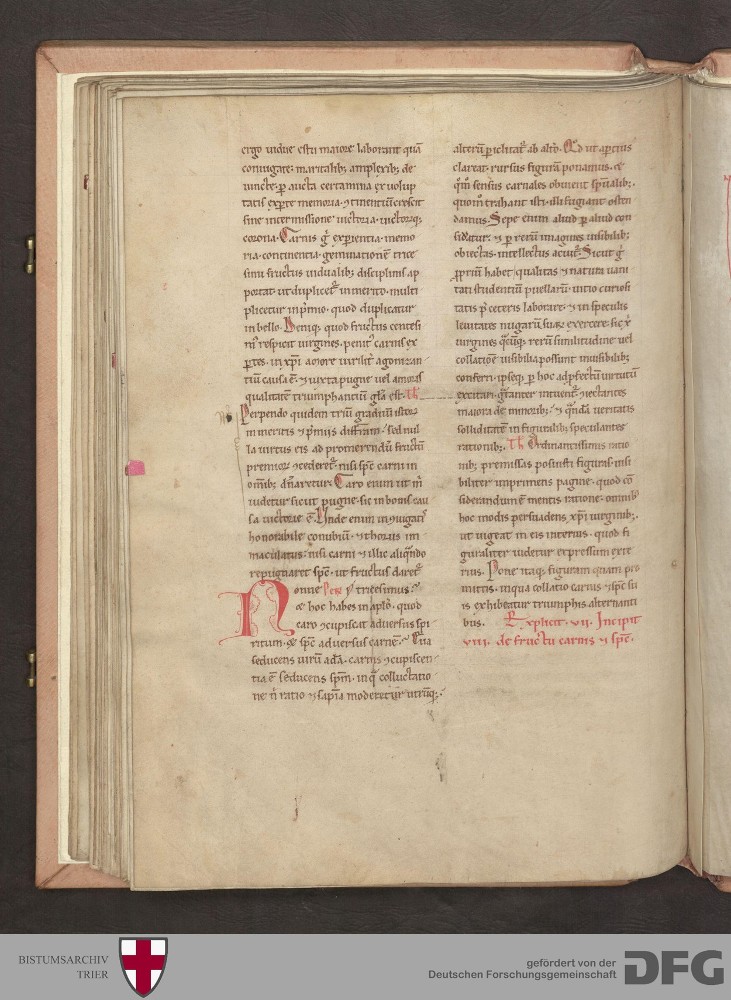 ergo uidue estu maiore laborant quā
coniugate. maritalibꝫ amplexibꝫ de
uincte. ꝑ aucta certamina ex uolup
tatis exꝑte memoria. ⁊tinentiū crescit
sine intermissione uictoria. uictorqꝫ
corona. Carnis gͦ exꝑientia. memo
ria. continentia. geminationē trice
simi fructus uidualibꝫ disciplinis ap
portat. ut duplicet᷑ in merito. multi
plicetur in p̄mio. quod duplicatur
in bello. Deniqꝫ quod fructus centesi
mꝰ respicit uirgines. penitꝰ carnis ex
ꝑtes. in xp̄i amore uirilit᷑ agonizan
tiū causa ē. ⁊ iuxta pugne uel amoris
qualitatē triumphantiū gl̄a est. Th
Perpendo quidem triū graduū istoꝝ
in meritis ⁊ p̄miis diffr̄am. sed nul
la uirtus eis ad promerendū fructū
premior̄ ⁊cederet᷑. nisi sp̄c carni in
om̄ibꝫ dn̄aretur. Caro enim ut m̄
uidetur sicut pugne. sic in bonis cau
sa uictorie ē. Unde enim in ⁊iugatꝭ
honorabile conubiū. ⁊ thorus im
maculatus. nisi carni ⁊ illic aliqn̄do
repugnaret sp̄c. ut fructus daret᷑
Nonne Per tricesimus.
⁊ hoc habes in aplo. quod
caro ⁊cupiscat aduersus spi
ritum. ⁊ sp̄c aduersus carnē. Eua
seducens uirū adā. carnis ⁊cupiscen
tia ē seducens sp̄m. in qͣ colluctatio
ne n̄ ratio ⁊ sapīa moderetur utrūqꝫ.
alterū ꝑiclitat᷑ ab altͦo. Qd ut aꝑtius
clareat. rursus figurā ponamus. ⁊
qͦm̄ sensus carnales obuient sp̄ualibꝫ.
quom̄ trahant isti. illi fugiant osten
damus. Sepe enim aliud ꝑ aliud con
sideatur. ⁊ ꝑ rerū imagines uisibilibꝫ
obiectas. intellectus acuit᷑. Sicut gͦ
ꝓpriū habet qualitas ⁊ natura uani
tati studentiū puellarū. uitio curiosi
tatis p̄ ceteris laborare. ⁊ in speculis
leuitates nugarū suaꝝ exercere. sic xͥ
uirgines qͣcūqꝫ rerū similitudine uel
collatione uisibilia possunt inuisibilibꝫ
conferri. ipseqꝫ ꝑ hoc ad ꝑfectū uirtutū
excitari. gͣnter intuent᷑. ⁊iectantes
maiora de minoribꝫ. ⁊ qͣndā ueritatis
soliditatē in figuralibꝫ speculantes
rationibꝫ. Th Adunantissimis ratio
nibꝫ premissas posuisti figuras. uisi
biliter imprimens pagine. quod cō
siderandum ē mentis ratione. omnibꝫ
hoc modis persuadens xp̄i uirginibꝫ.
ut uigeat in eis interius. quod fi
guraliter uidetur expressum exte
rius. Pone itaqꝫ figuram quam pro
mittis. in qua collatio carnis ⁊ sp̄c su
is exhibeatur triumphis alternanti
bus. Explicit. vii. Incipit
viii. de fructu carnis ⁊ sp̄c.
BISTUMSARCHIV
TRIER
gefördert von der
Deutschen Forschungsgemeinschaft
DFG